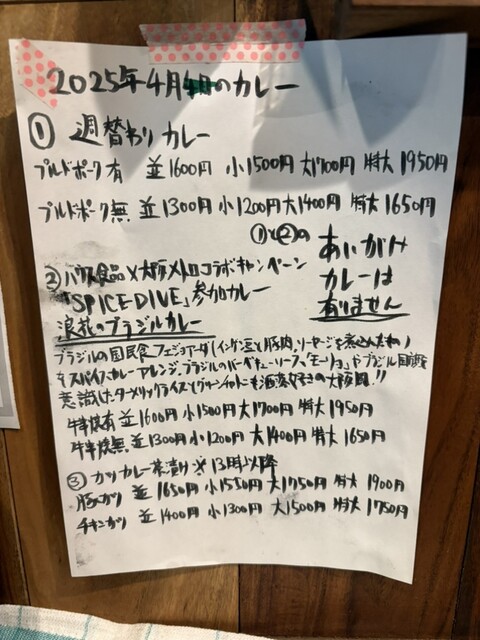 2025年4月4日のカレー
① 週替わりカレー
プルドポーク有 並1600円 小1500円 大1700円 特大1950円
プルドポーク無 並1300円 小1200円 大1400円 特大1650円
①と②の
あいがけ
カレーは
有りません
②ハウス食品×大阪メトロコラボキャンペーン
「SPICE DIVE」参加カレー
浪花のブラジルカレー
ブラジルの国民食フェジョアーダ(インゲン豆と豚肉、ソーセージを煮込んだもの)
をスパイスカレーアレンジ、ブラジルのバーベキューソース、「モーリョ」やブラジル国旗を
意識したターメリックライスとグリーン
牛すじ有 並1600円 小1500円 大1700円 特大1950円
牛すじ無 並1300円 小1200円 大1400円 特大1650円
③ カツカレー茶漬け ※13時以降
豚カツ 並1650円 小1550円 大1750円 特大1900円
チキンカツ 並1400円 小1300円 大1500円 特大1750円